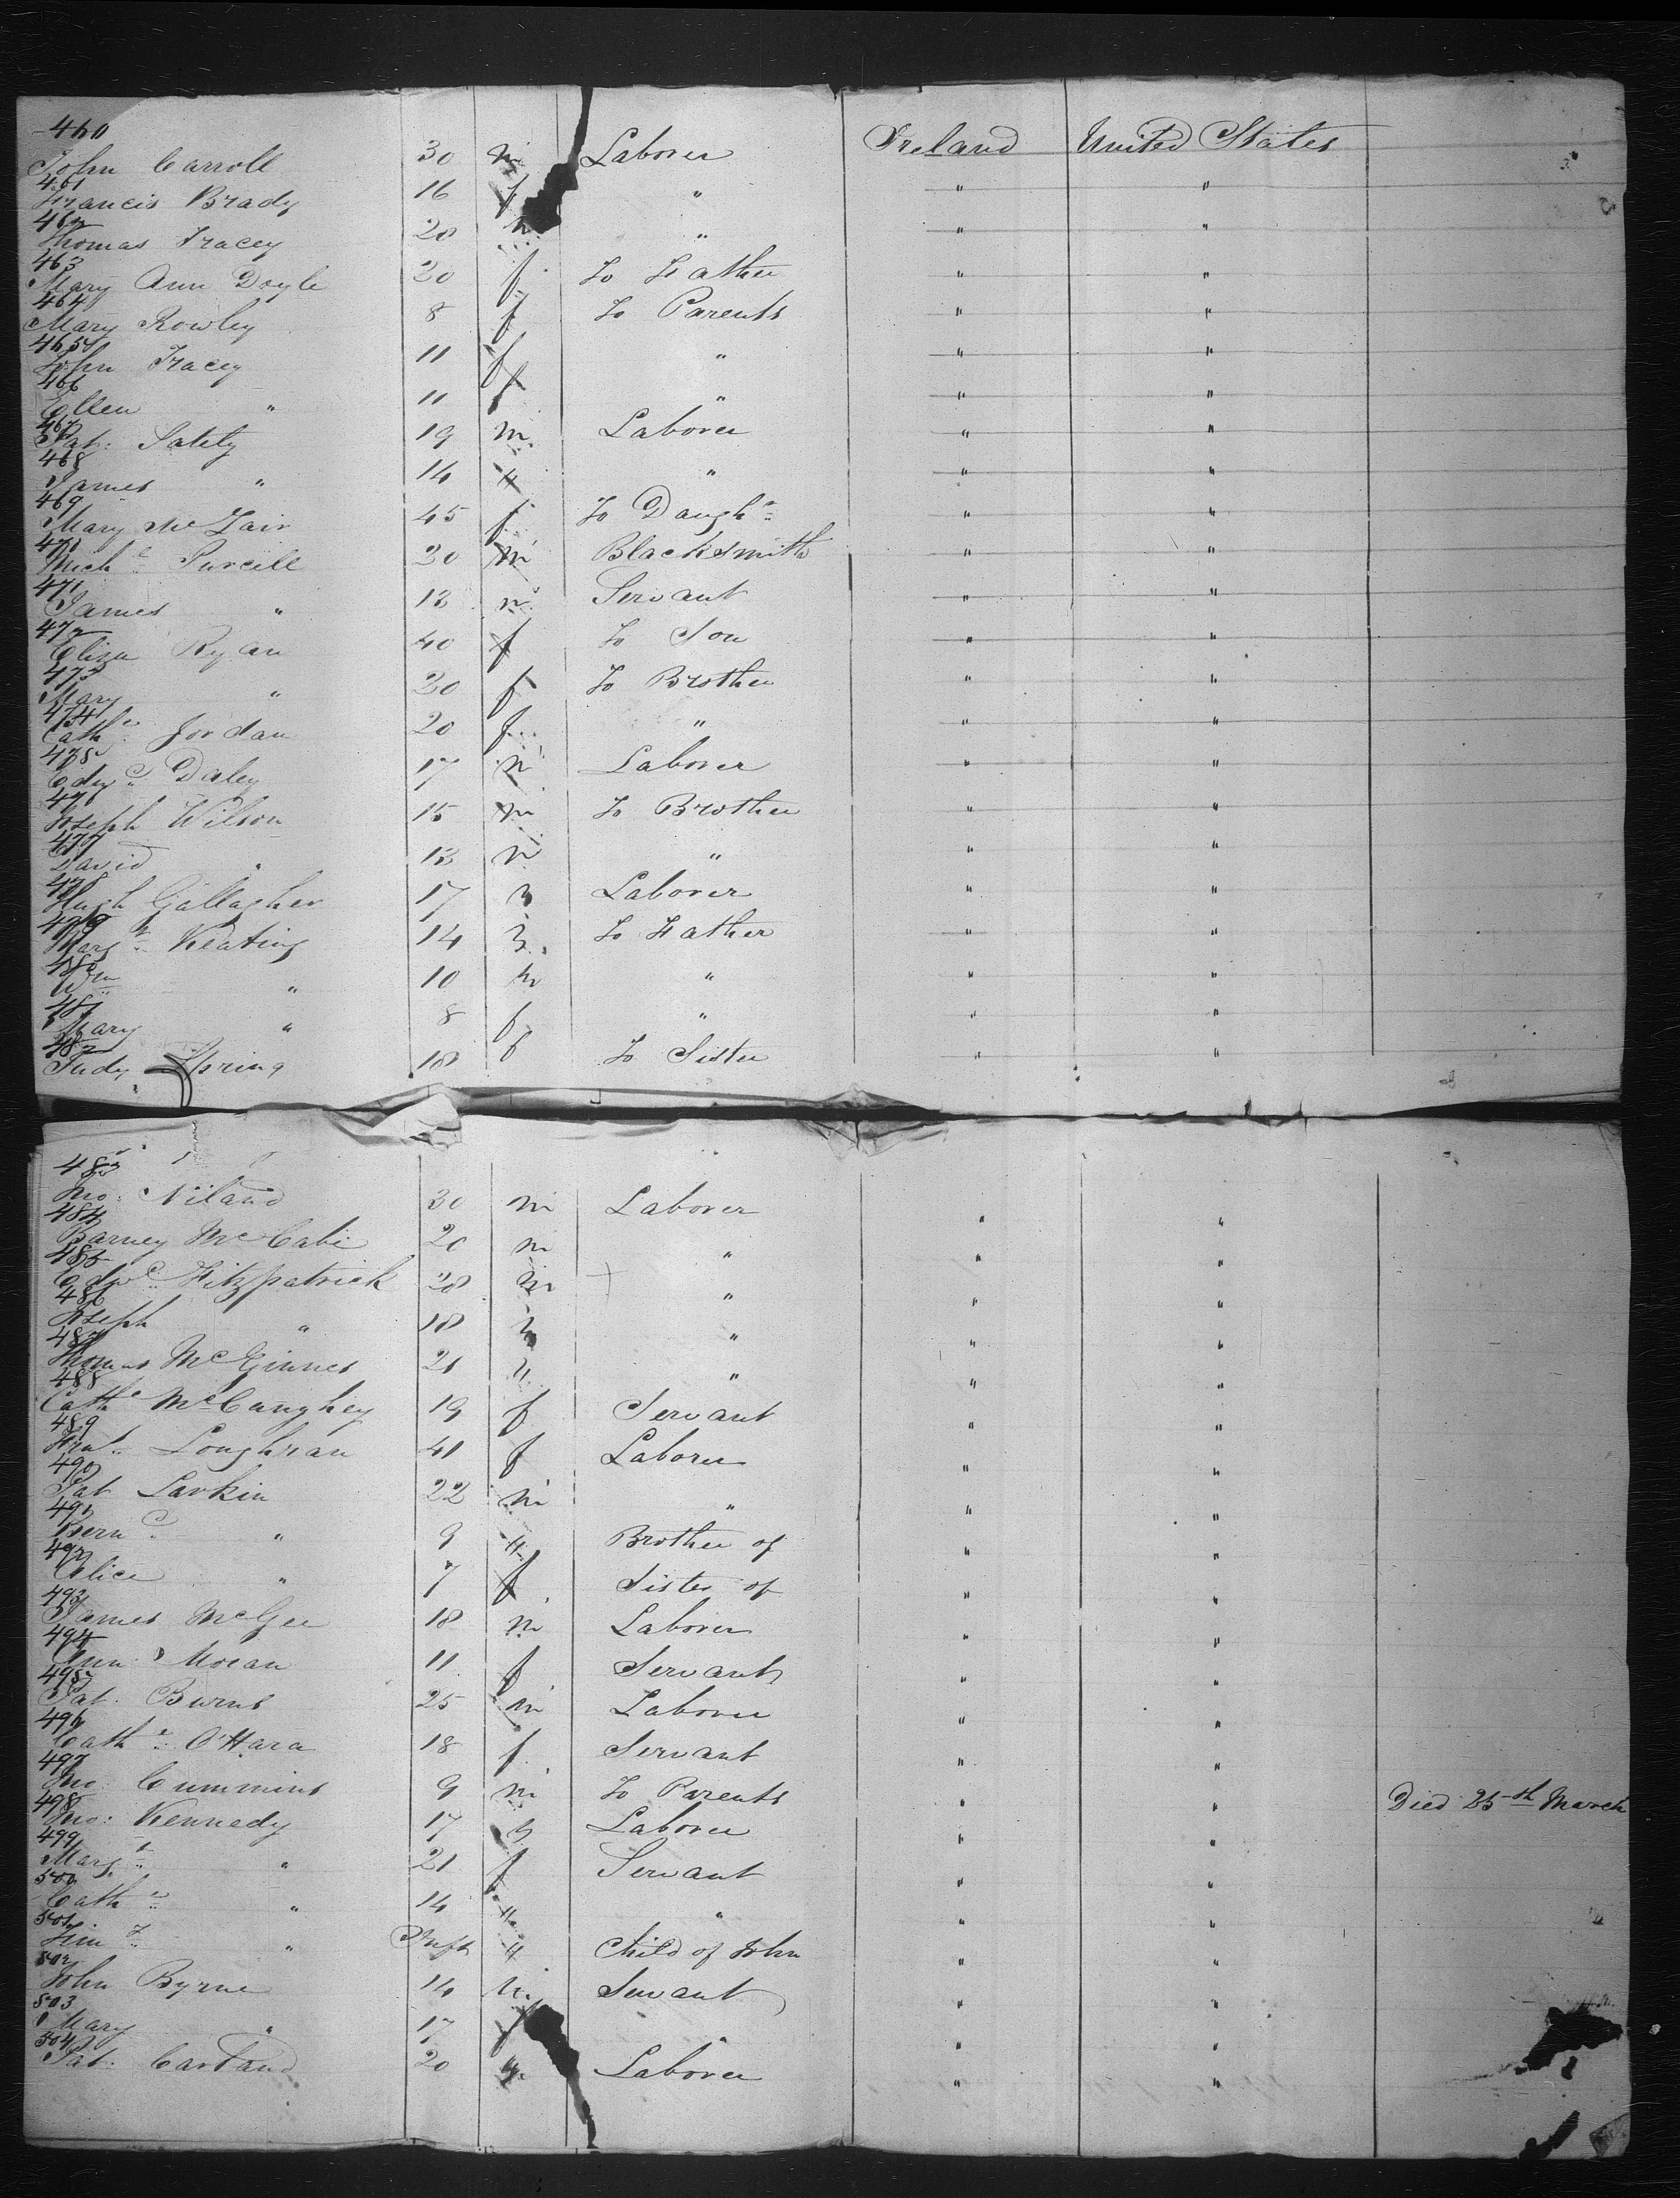 460
John Carroll 30 m Laborer Ireland United States
461
Francis Brady 16 f " " "
462
Thomas Tracey 20 m " " "
463
Mary Ann Doyle 20 f To Father " "
464
Mary Rowley 8 f To Parents " "
465
John Tracey 11 f " " "
466
Ellen " 11 f " " "
467
Pat: 19 m Laborer " "
468
James " 14 " " " "
469
Mary 45 f To Daughr " "
470
Michl Purcell 20 m Blacksmith " "
471
James " 13 m Servant " "
472
Eliza Ryan 40 f To Son " "
473
Mary " 20 f To Brother " "
474
Cathe Jordan 20 f " " "
475
Daley 17 m Laborer " "
476
Joseph Wilson 15 m To Brother " "
477
David " 13 m " " "
478
Hugh Gallagher 17 Laborer " "
479
Margt Keating 14 To Father " "
480
Wm " 10 m " " "
481
Mary " 8 f " " "
482
Judy Spring 18 f To Sister " "
483
Jno: Niland 30 m Laborer " "
484
Barney McCabe 20 m " " "
485
Edwd Fitzpatrick 28 m " " "
486
Joseph " 18 " " "
487
Thomas McGinnes 21 " " " "
488
Cathe McCaughey 19 f Servant " "
489
Loughran 41 f Laborer " "
490
Pat Larkin 22 m " " "
491
Bernd " 9 " Brother of " "
492
Alice " 7 f Sister of " "
493
James McGee 18 m Laborer " "
494
Ann Moran 11 f Servant " "
495
Pat. Burns 25 m Laborer " "
496
Cathe O'Hara 18 f Servant " "
497
Jno: Cummins 9 m To Parents " " Died 25th March
498
Jno: Kennedy 17 Laborer " "
499
Margt " 21 f Servant " "
500
Cathe " 14 " " " "
501
Timy " Inft " Child of John " "
502
John Byrne 14 m Servant " "
503
Mary " 17 f " " "
504
Pat: Cartand 20 Laborer " "